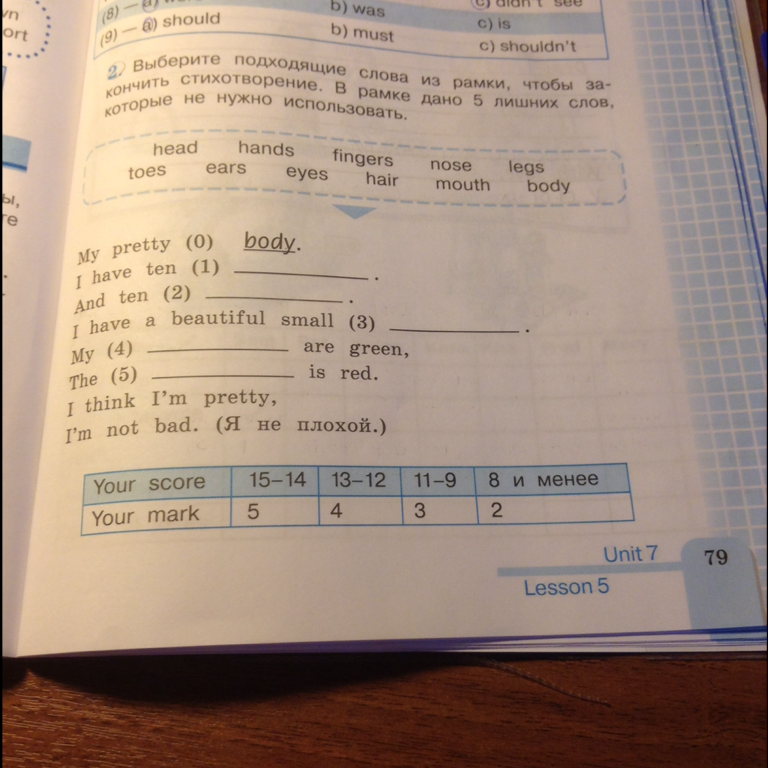 ort
(8) — a)
b) was
c) didn't see
(9) — a) should
b) must
c) is
c) shouldn't
2. Выберите подходящие слова из рамки, чтобы за-
кончить стихотворение. В рамке дано 5 лишних слов,
которые не нужно использовать.
head hands fingers nose legs
toes ears eyes hair mouth body
My pretty (0) body.
I have ten (1) ____________ .
And ten (2) ____________ .
I have a beautiful small (3) ____________ .
My (4) ____________ are green,
The (5) ____________ is red.
I think I'm pretty,
I'm not bad. (Я не плохой.)
Your score 15–14 13–12 11–9 8 и менее
Your mark 5 4 3 2
Unit 7
79
Lesson 5